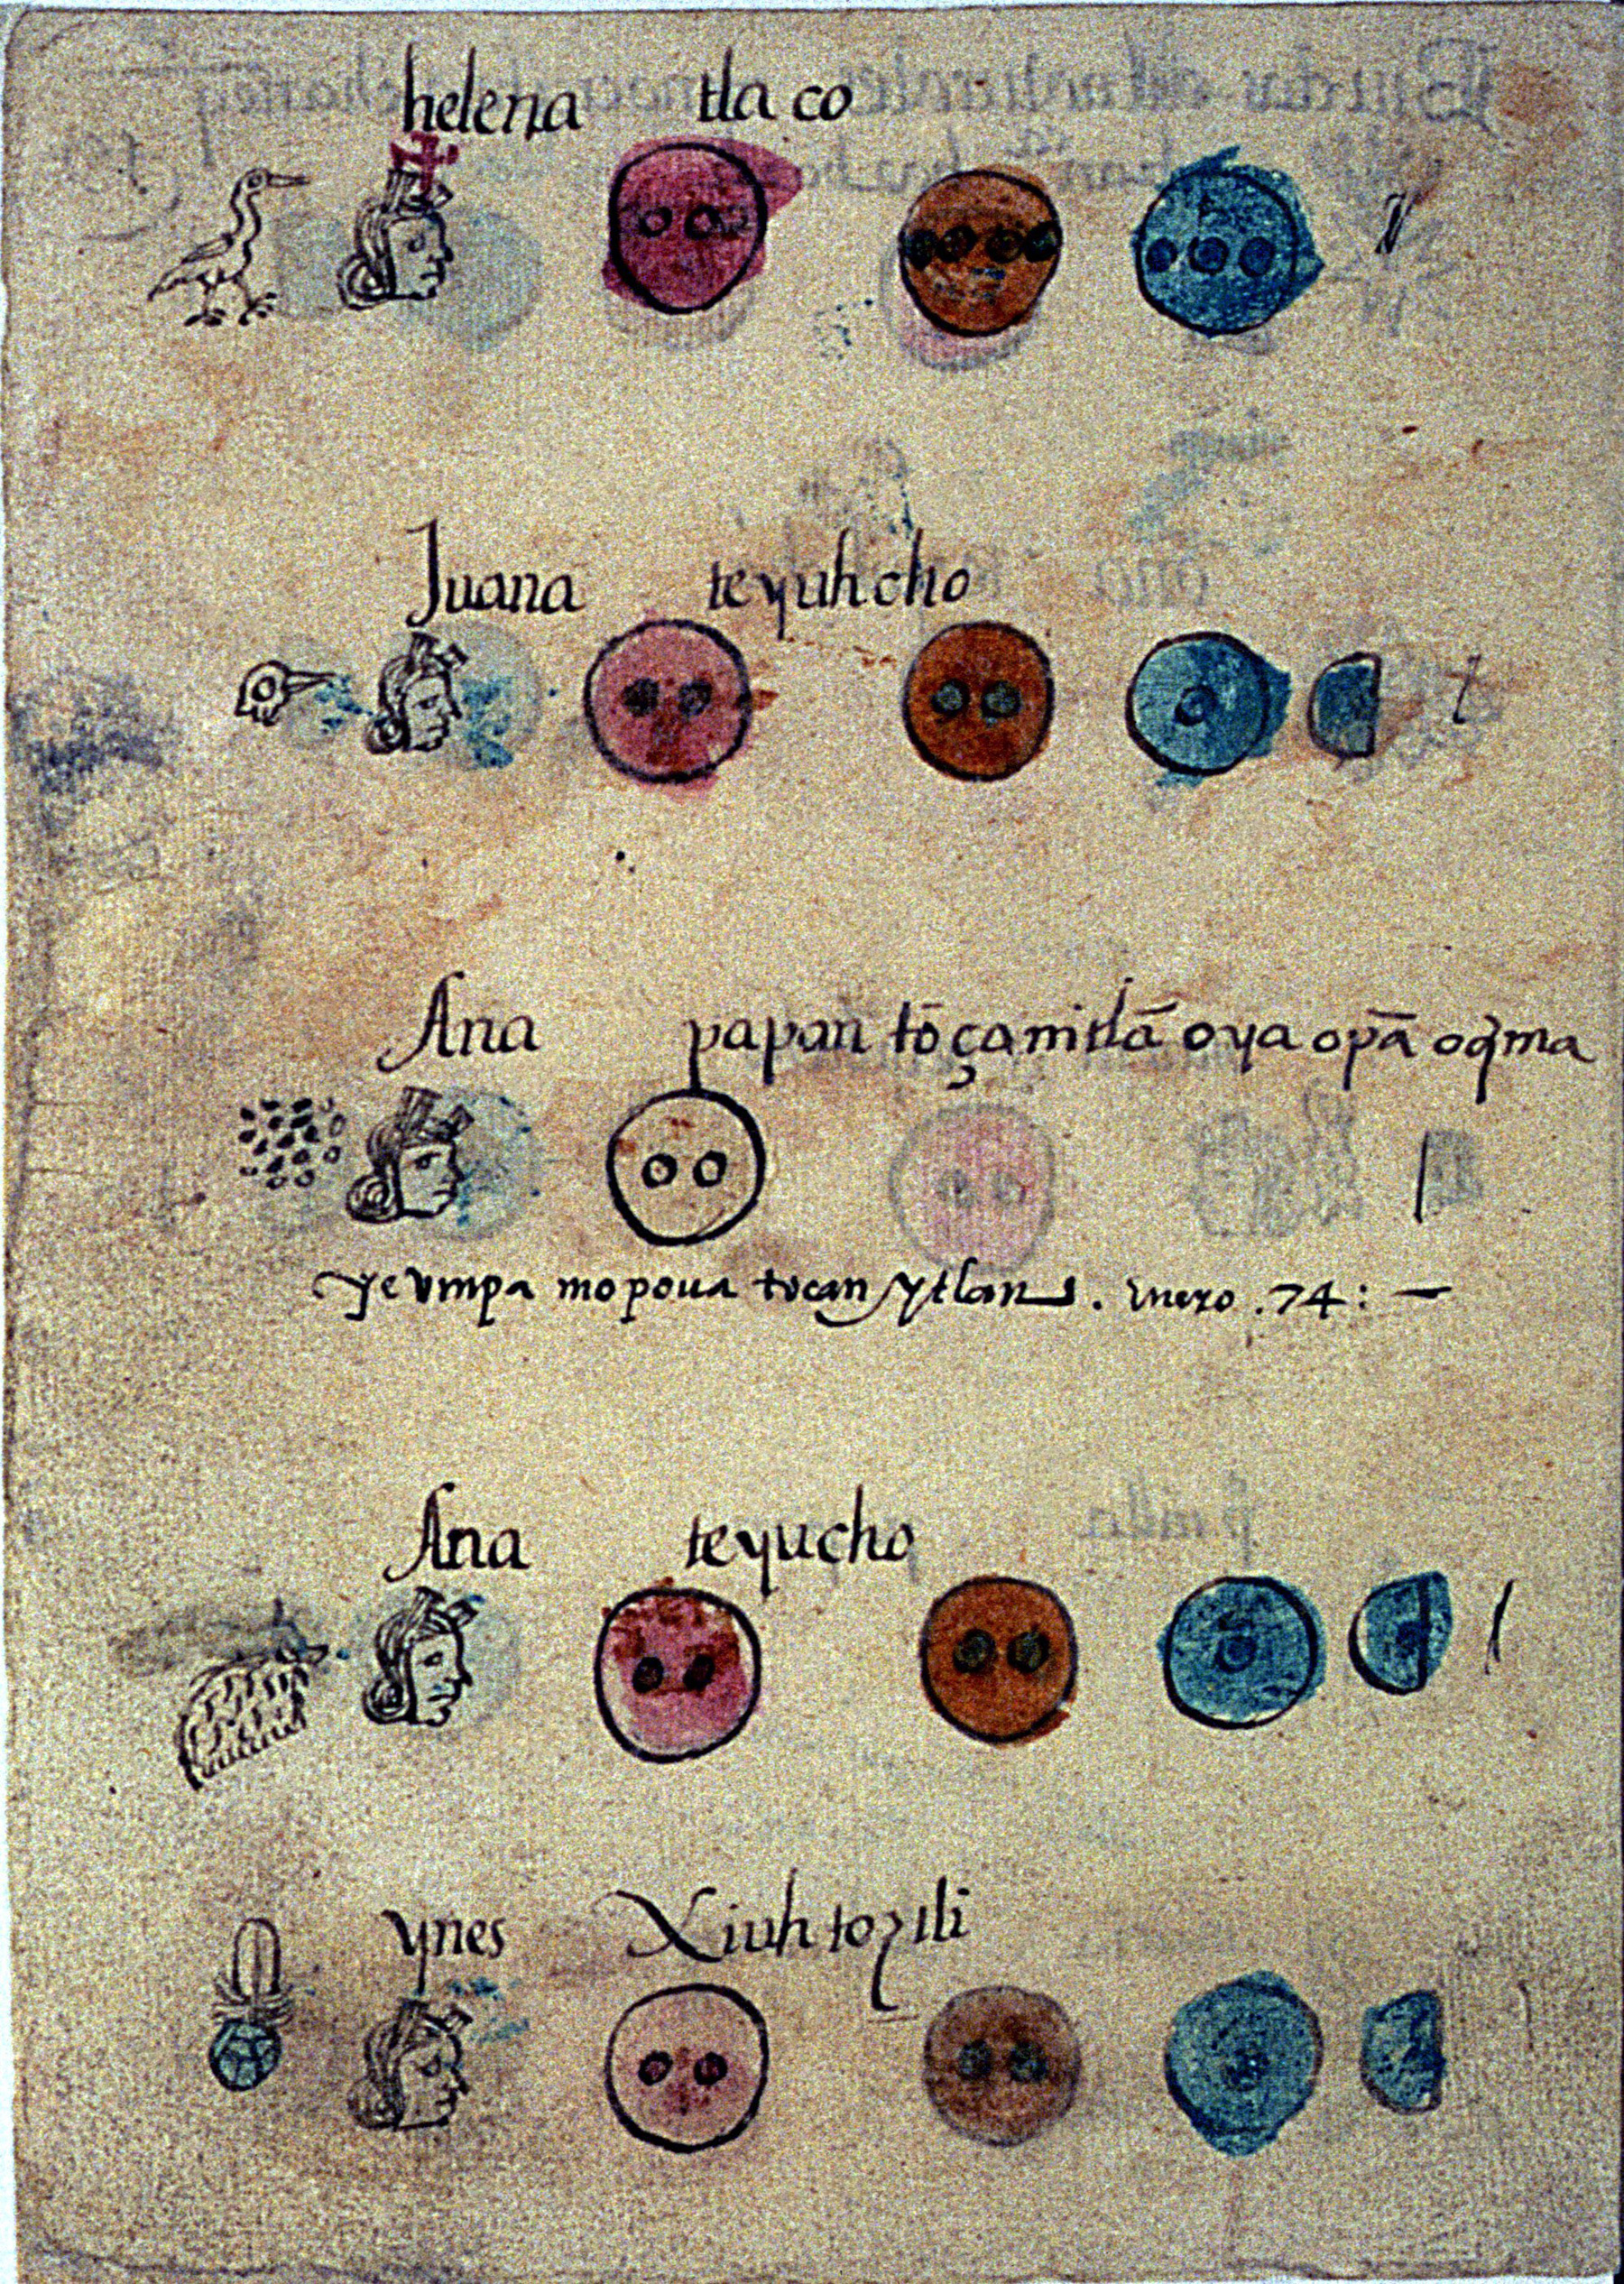 helena tla co
Juana teyuhcho
Ana papan tōçamitlā oya opā oq̄ma
ye vmpa mopoua tocan ytlan . Enero .74: —
Ana teyucho
ynes Xiuhtozili